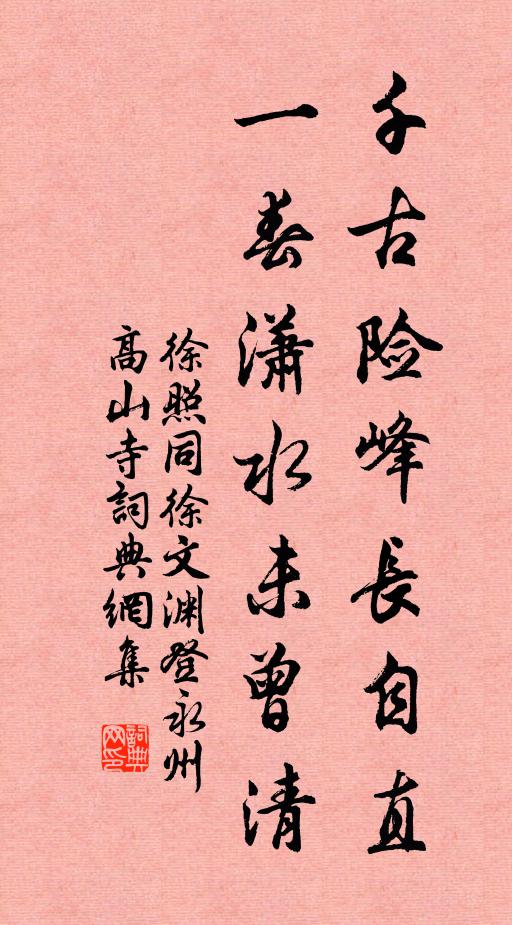 千古险峰長自直
一春瀟水未曾清
徐照同徐文渊登永州
高山寺詞典網集
詞典
网印